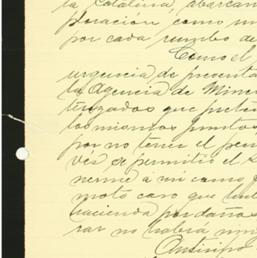 la Catalina, abarcan
ploración como un
por cada rumbo de
Como el
urgencia de presenta
la Agencia de Mine
teresados que preten
los mismos puntos
por no tener el per
ves se permitió el S.
nerme a mi como
moto caro que
hacienda por daños
rar no habra nin
Anticipo